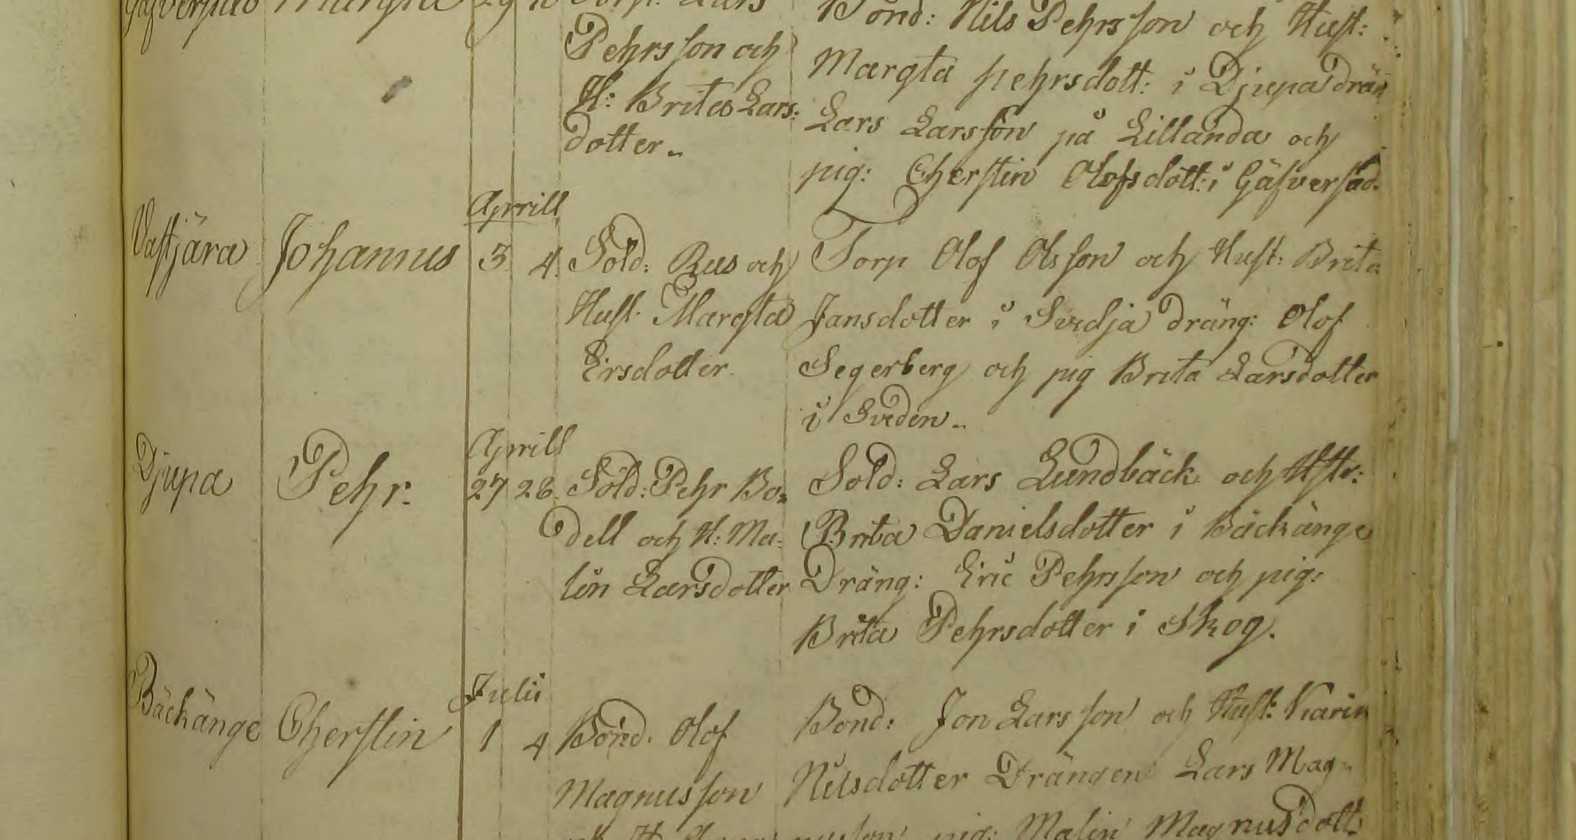 Pehrsson och
H: Brita Lars:
dotter..
Bond: Nils Pehrsson och Hust:
Margta pehrsdott: i Djupa drän
Lars Larsson på Lillanda och
pig: Cherstin Olofsdott: i Gäfversta
Vastjära
Johannus
Aprill
3 4
Sold: Rus och
Hust. Margta
Ersdotter
Torp Olof Olsson och Hust: Brita
Jansdotter i Svedja dräng: Olof
Segerberg och pig Brita Larsdotter
i Sveden..
Djupa
Pehr.
Aprill
27 28
Sold: Pehr Bo=
dell och H: Ma=
lin Larsdotter
Sold: Lars Lundbäck och Hstr:
Brita Danielsdotter i Bäckänge
Dräng: Eric Pehrsson och pig:
Brita Pehrsdotter i Skog.
Bäckänge
Cherstin
Julii
1 4
Bond. Olof
Magnusson
Bond: Jon Larsson och Hust: Karin
Nilsdotter Drängen Lars Mag=
nusson pig: Malin Magnusdott: